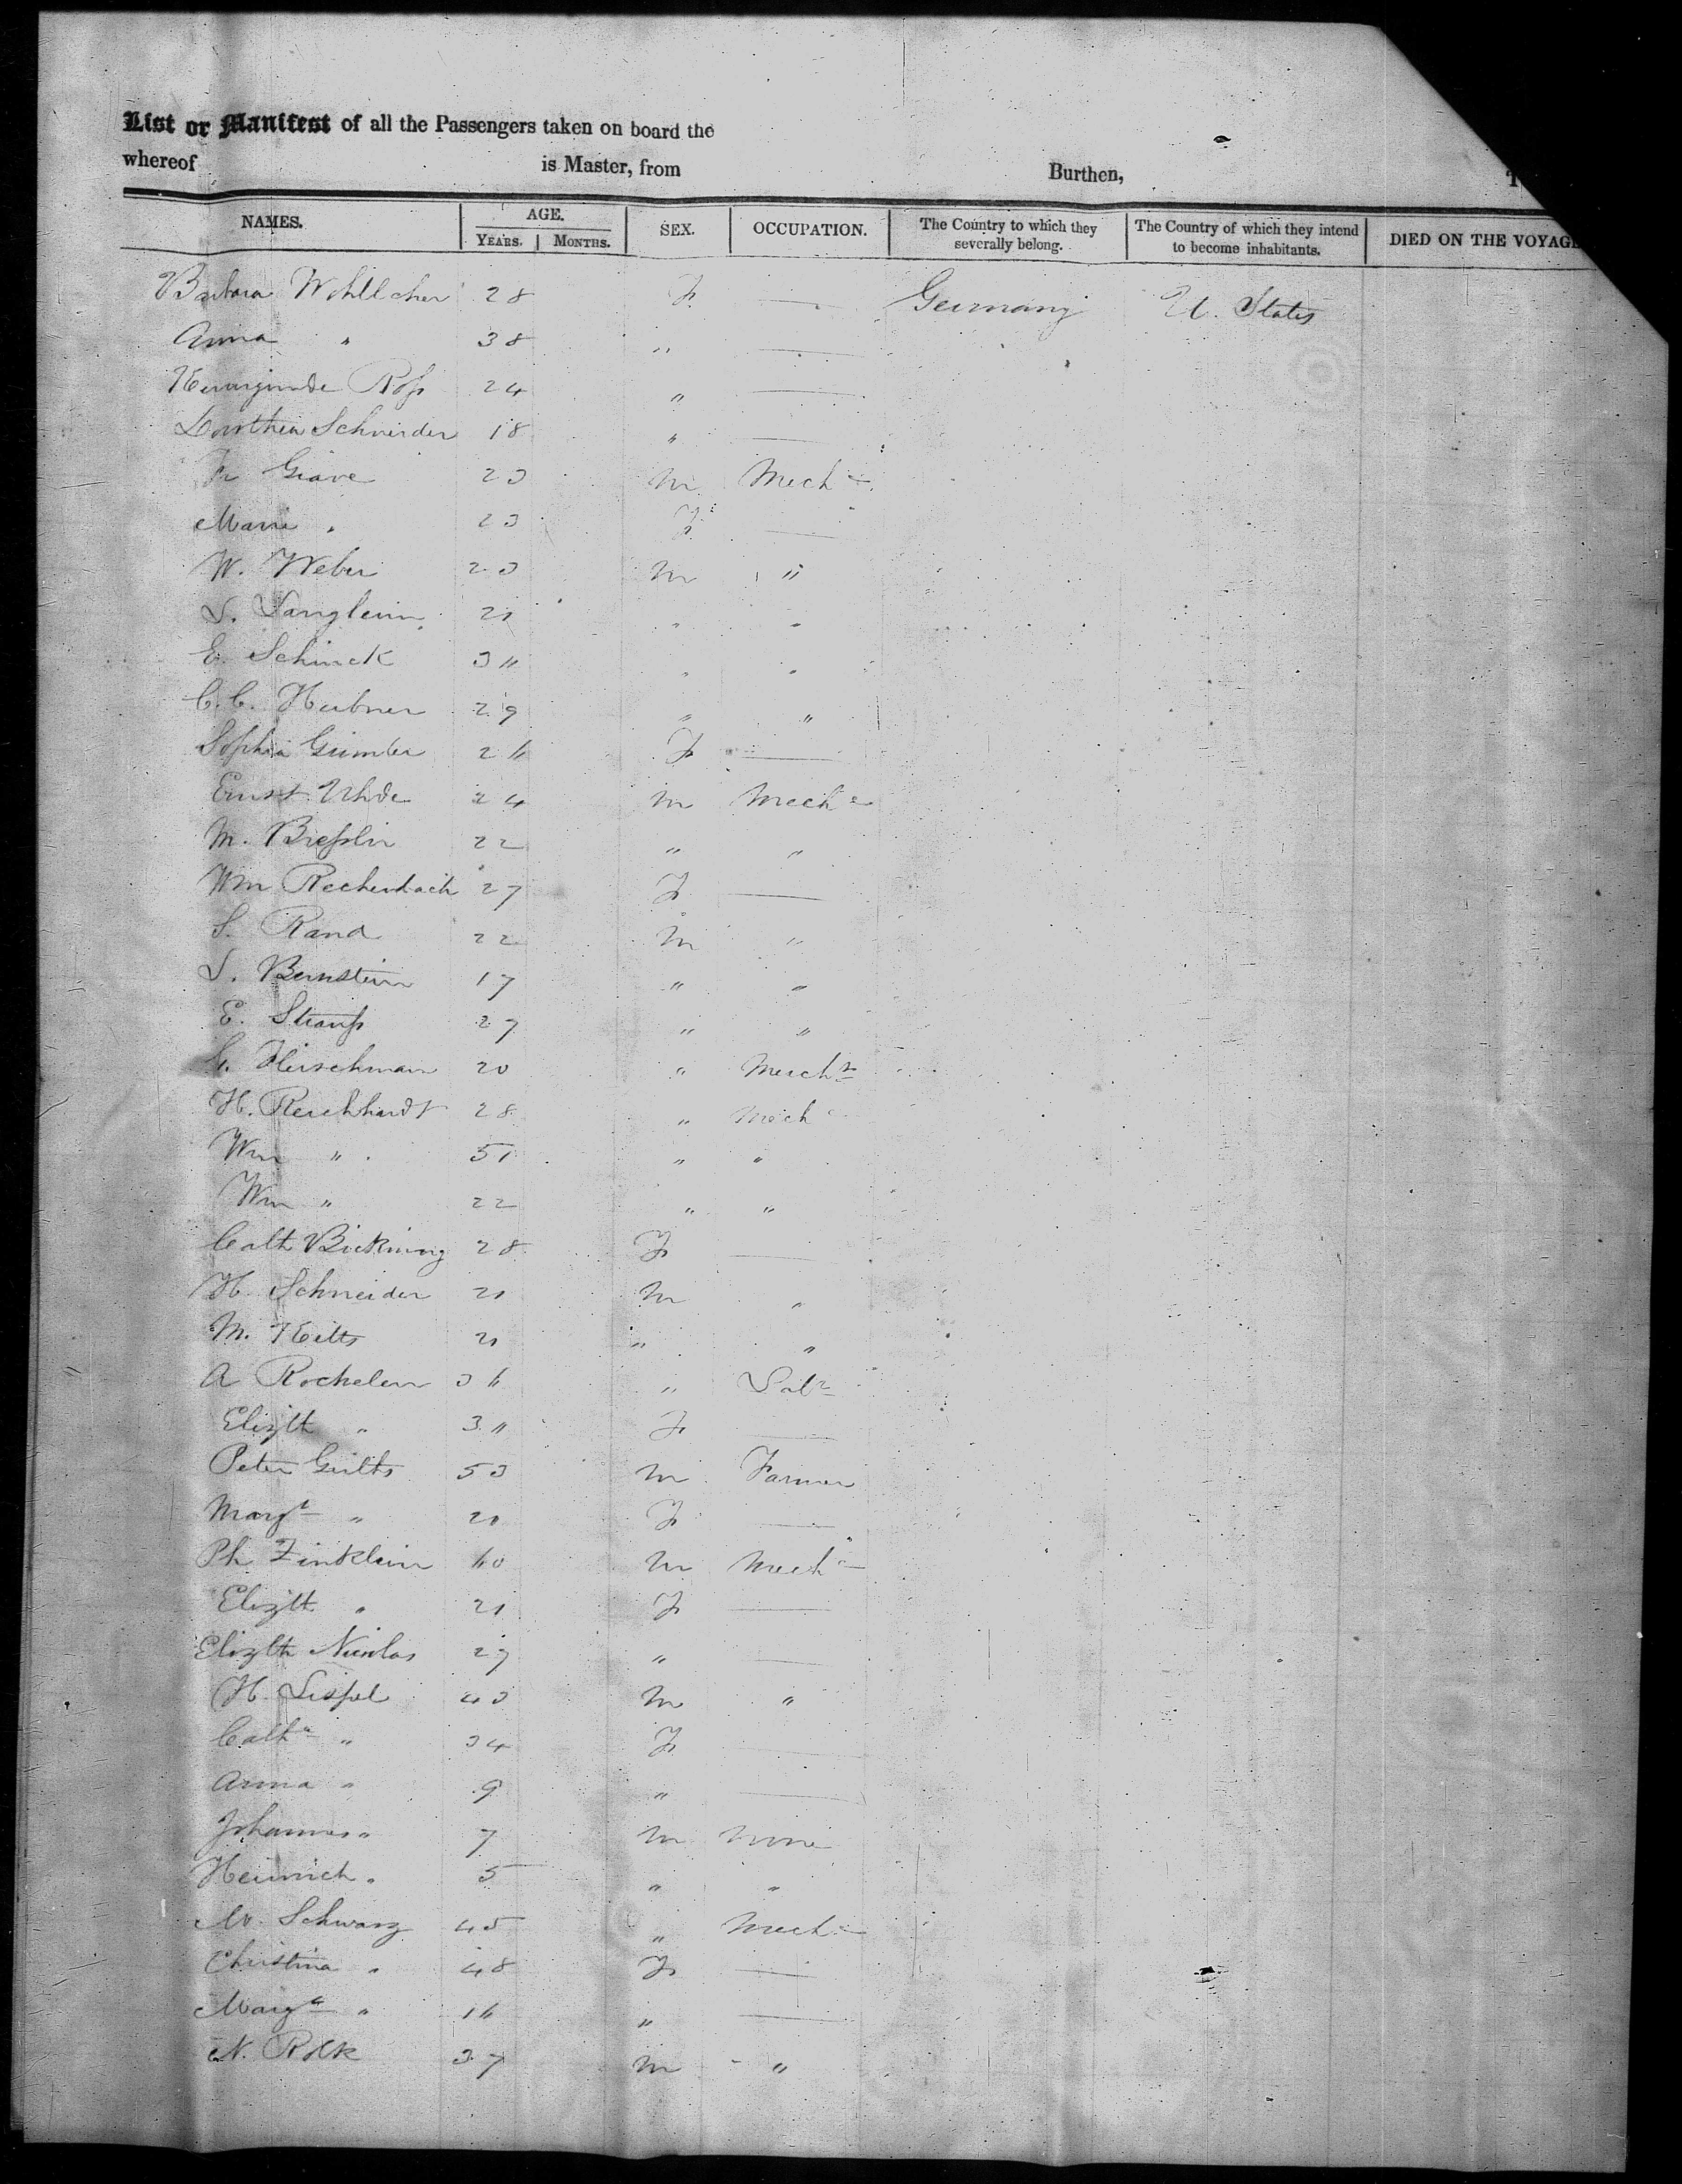 List or Manifest of all the Passengers taken on board the
whereof is Master, from Burthen, T
NAMES. AGE. YEARS. MONTHS. SEX. OCCUPATION. The Country to which they severally belong. The Country of which they intend to become inhabitants. DIED ON THE VOYAGE
Barbara Wohllcher 28 F — Germany U. States
Anna " 38 " —
Kunigunde Roß 24 " —
Dorothea Schneider 18 " —
Fr Grave 23 M Mech c
Marie " 23 F —
W. Weber 23 M "
L. Langlein 21 " "
E. Schinck 36 " "
C. C. Huebner 29 " "
Sophia 26 F —
Ernst Uhde 24 M Mech c
M. Bießlin 22 " "
Wm Rechenbach 27 F —
S. Rand 22 M "
L. Bernstein 17 " "
E. Strauß 27 " "
G. Fleischman 20 " Mercht
H. Reichhardt 28 " Mech c
Wm " 51 " "
Wm " 22 " "
Cath Bickning 28 F —
H. Schneider 21 M "
M. Keilts 21 " "
A Rochelein 36 " Labr
Elizth " 36 F —
Peter Geilts 53 M Farmer
Margt " 21 F —
Ph Zinklein 60 M Mech c
Elizth " 21 F —
Elizth Nicolas 27 " —
H. Lispel 43 M "
Catha " 34 F —
Anna " 9 " —
Johannes " 7 M None
Heinrich " 5 " "
M. Schwarz 45 " Mech c
Christina " 48 F —
Margt " 16 " —
N. Rock 37 M "